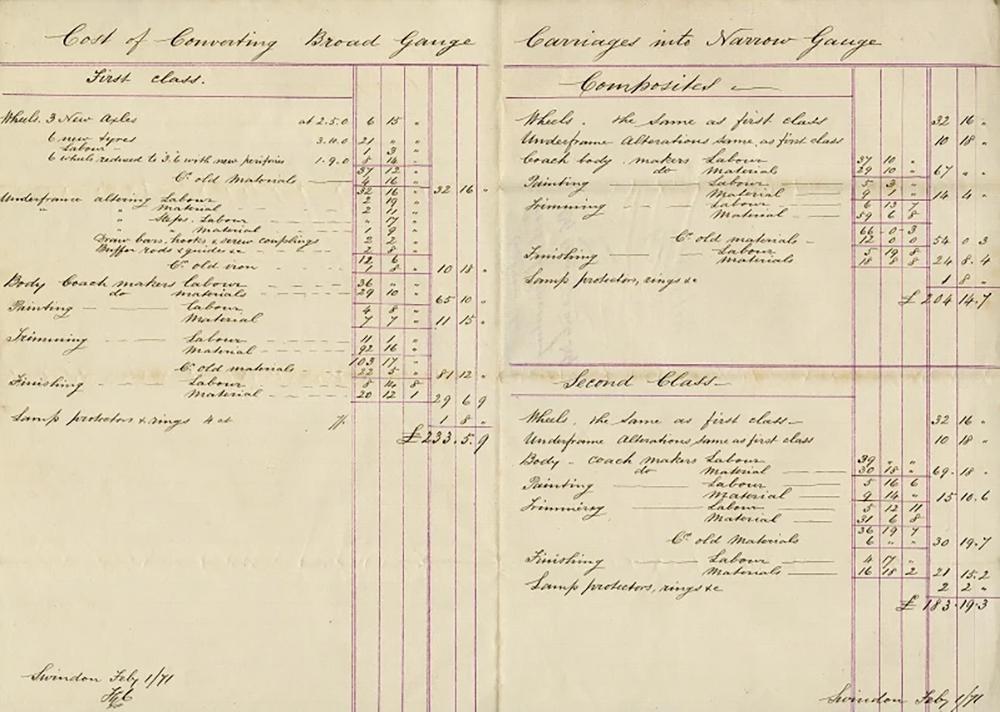 Cost of Converting Broad Gauge Carriages into Narrow Gauge
First class.
Wheels. 3 New Axles at 2.5.0 6 15 "
6 new tyres 3.10.0 21 " "
Labour 1 3 "
6 wheels reduced to 3.6 with new periferies 1.9.0 8 14 "
37 12 "
Cr old Materials 4 16 "
32 16 " 32 16 "
Underframe altering Labour 2 19 "
" " Material 2 11 "
" Steps. Labour " 17 "
" " Material 1 9 "
Draw bars, hooks, & screw couplings 2 2 "
Buffer rods & guides &c 2 8 "
12 6 "
Cr old iron 1 8 " 10 18 "
Body Coach makers labour 36 " "
do materials 29 10 " 65 10 "
Painting Labour 4 8 "
Material 7 7 " 11 15 "
Trimming Labour 11 1 "
Material 92 16 "
103 17 "
Cr old materials 22 5 " 81 12 "
Finishing Labour 8 14 8
Material 20 12 1 29 6 9
Lamp protectors & rings 4 at 7/- 1 8 "
£ 233.5.9
Swindon Feby 1/71
Composites
Wheels. the same as first class 32 16 "
Underframe Alterations same as first class 10 18 "
Coach body makers Labour 37 10 "
do Material 29 10 " 67 " "
Painting Labour 5 3 "
Material 9 1 " 14 4 "
Trimming Labour 6 13 7
Material 59 6 8
66 0 3
Cr old materials 12 0 0 54 0 3
Finishing Labour 5 19 8
Materials 18 8 8 24 8 4
Lamp protectors, rings &c 1 8 "
£ 204 14.7
Second Class
Wheels, the same as first class 32 16 "
Underframe Alterations, same as first class 10 18 "
Body - coach makers Labour 39 " "
do Material 30 18 " 69 18 "
Painting Labour 5 16 6
Material 9 14 " 15 10.6
Trimming Labour 5 12 11
Material 31 6 8
36 19 7
Cr old materials 6 " " 30 19.7
Finishing Labour 4 17 "
Materials 16 18 2 21 15.2
Lamp protectors, rings &c 2 2 "
£ 183.19.3
Swindon Feby 1/71